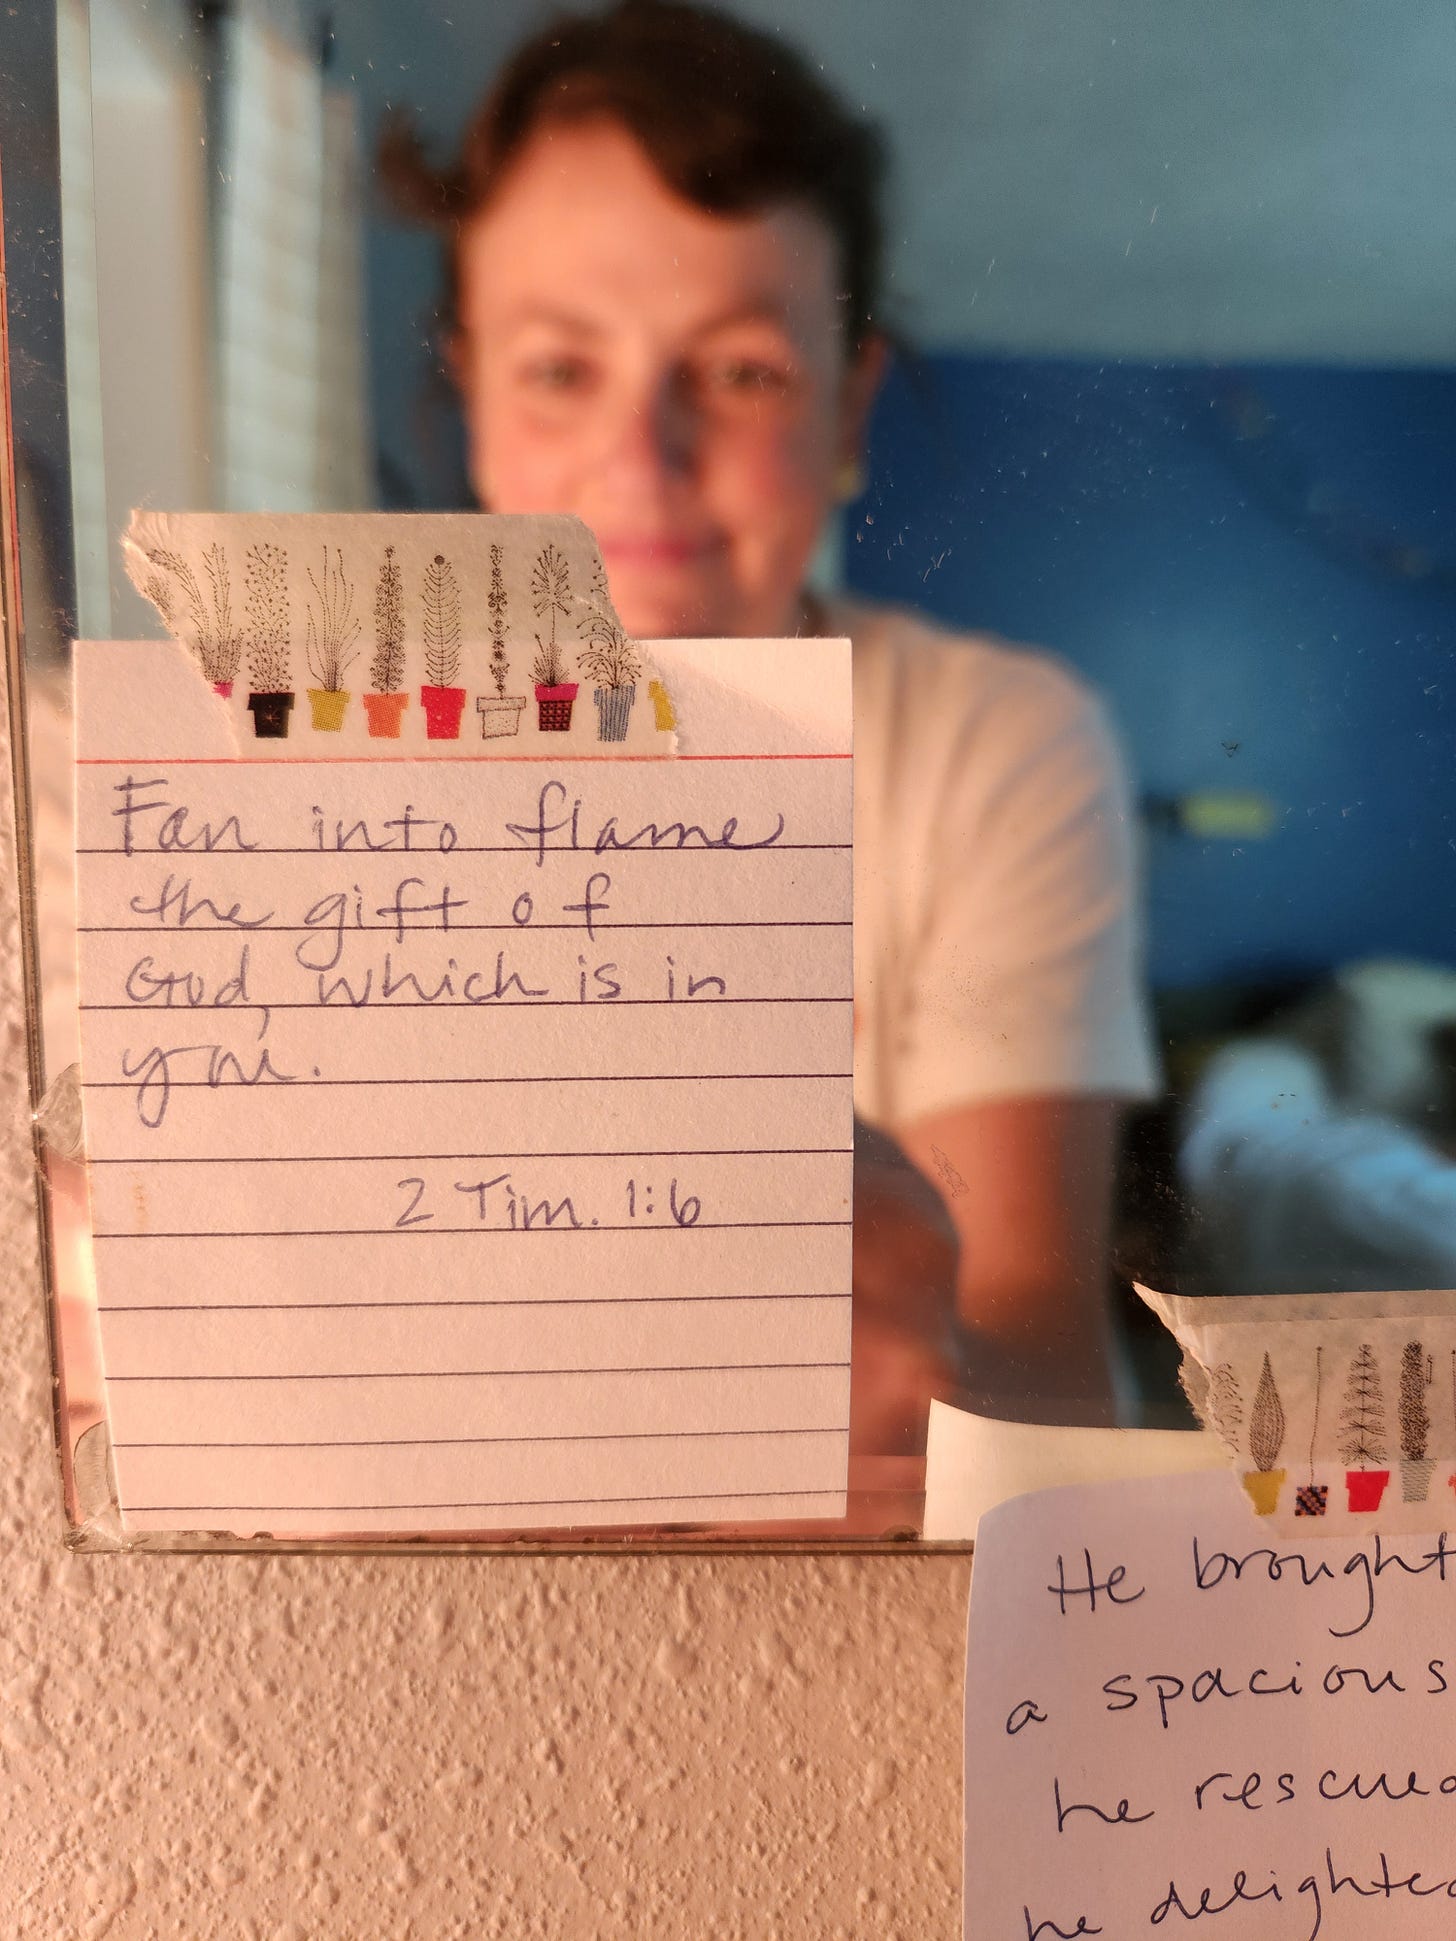 Fan into flame
the gift of
God, which is in
you.
2 Tim. 1:6
He brought
a spacious
he rescued
he delighted